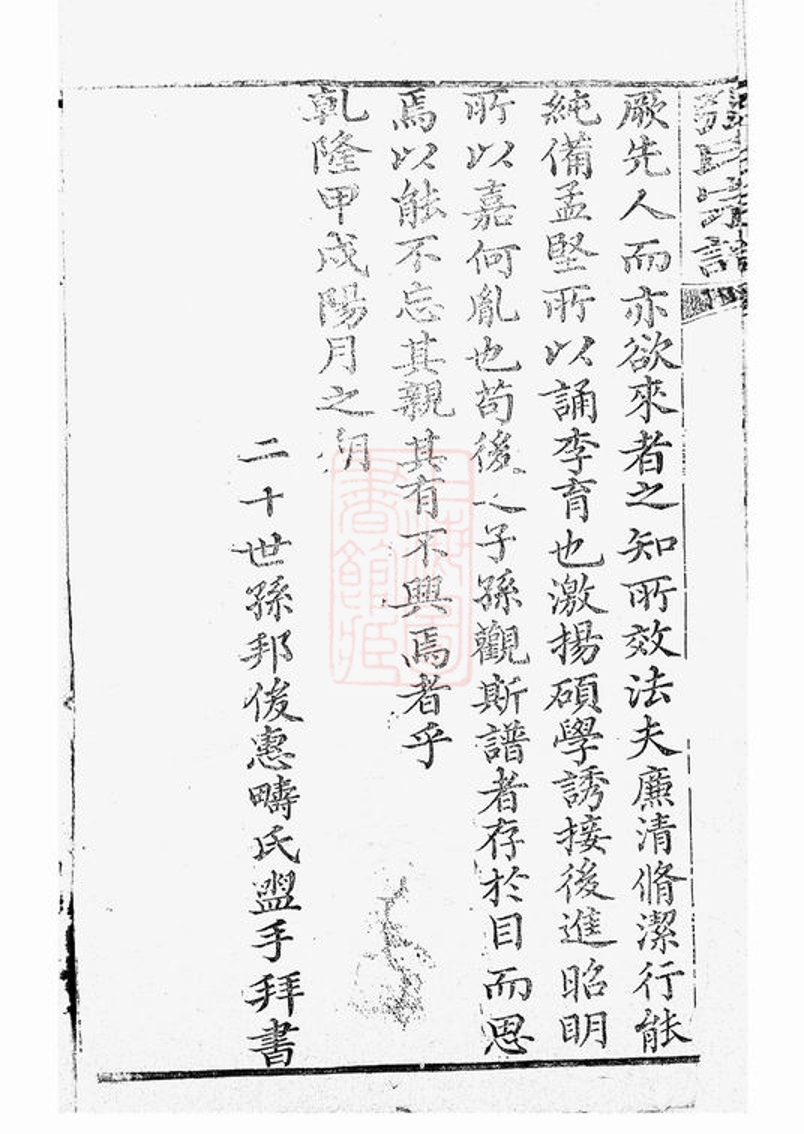 張氏宗譜
厥先人而亦欲來者之知所效法夫廉清脩潔行能
純備孟堅所以誦李育也激揚碩學誘接後進昭明
所以嘉何胤也苟後之子孫觀斯譜者存於目而思
焉以能不忘其親其有不興焉者乎
乾隆甲戌陽月之朔
二十世孫邦俊惠疇氏盥手拜書
上海圖書館藏